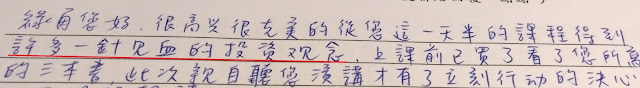 綠角您好,很高兴很充美的從您這一天半的課程得到
許多一針见血的投资观念,上課前已買了看了您的寫
的三本書,此次親自聽您演講才有了立刻行动的決心